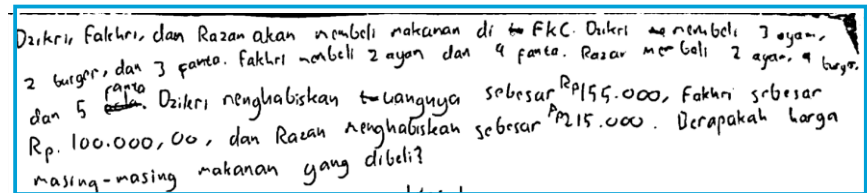 Dzikri, Fakhri, dan Razan akan membeli makanan di FKC. Dzikri membeli 3 ayam,
2 burger, dan 3 fanta. Fakhri membeli 2 ayam dan 4 fanta. Razan membeli 2 ayam, 4 burger,
dan 5 fanta. Dzikri menghabiskan uangnya sebesar Rp155.000, Fakhri sebesar
Rp. 100.000,00, dan Razan menghabiskan sebesar Rp215.000. Berapakah harga
masing-masing makanan yang dibeli?